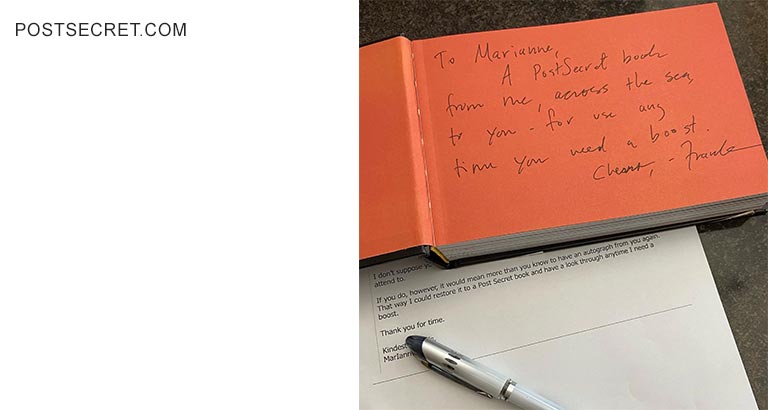 POSTSECRET.COM
To Marianne,
A PostSecret book
from me, across the sea,
to you - for use any
time you need a boost.
Cheers, - Frank
I don't suppose y
attend to.
If you do, however, it would mean more than you know to have an autograph from you again.
That way I could restore it to a Post Secret book and have a look through anytime I need a
boost.
Thank you for time.
Kindest
Mariann